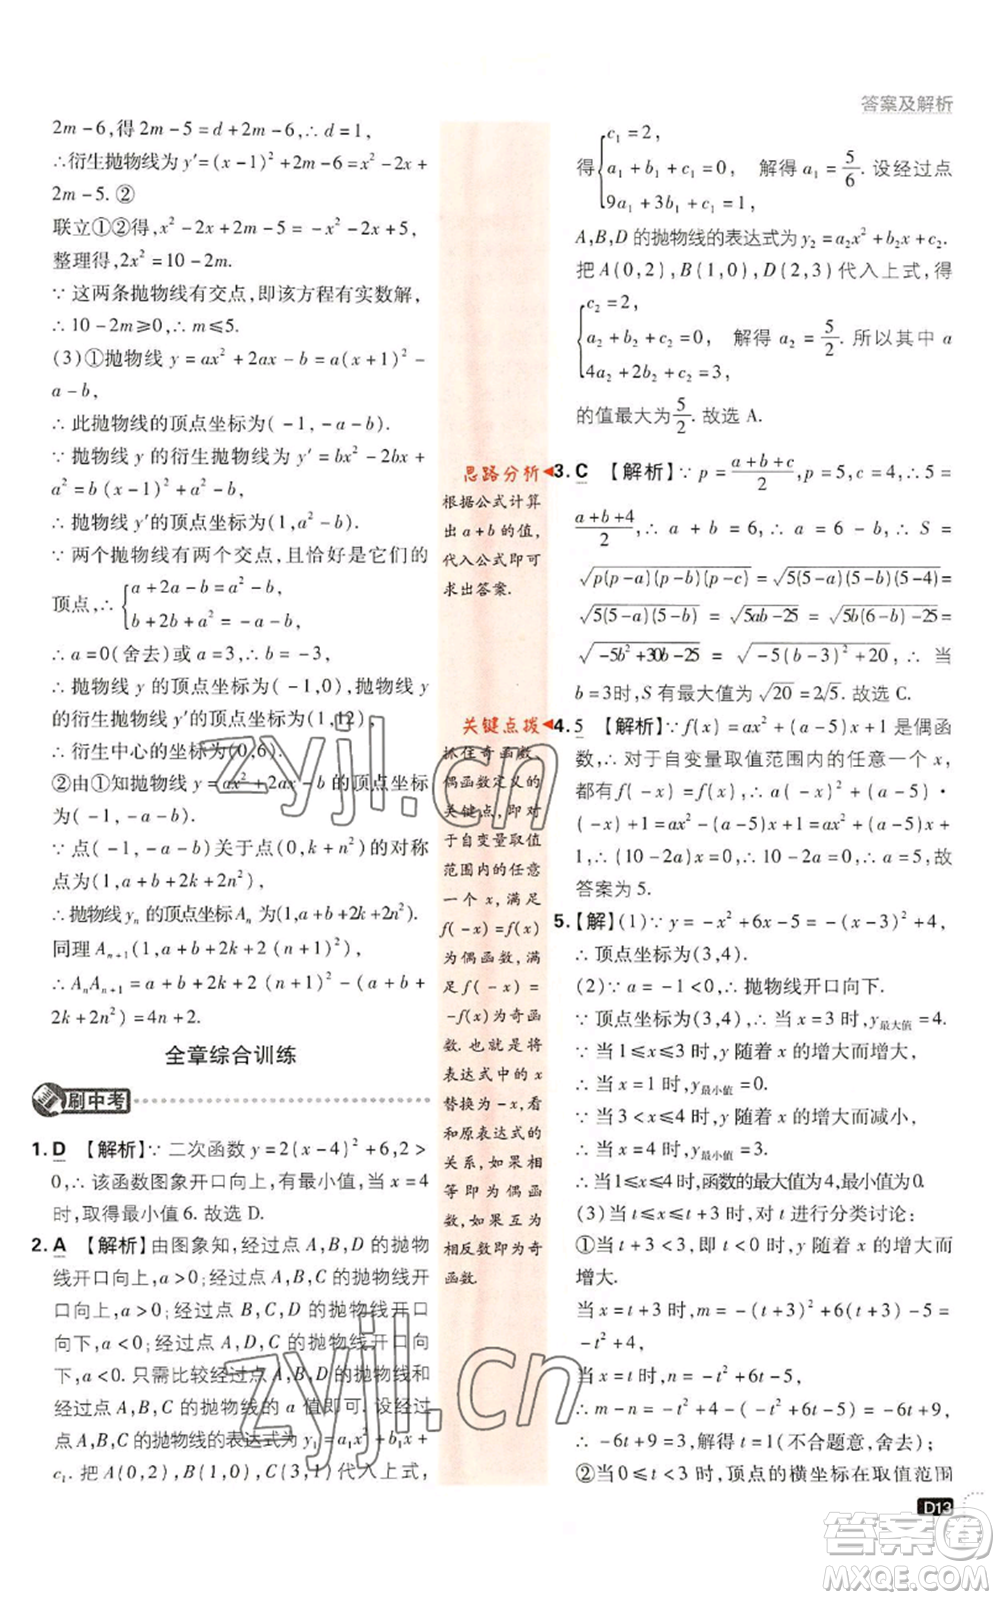 答案及解析
2m-6,得2m-5=d+2m-6,∴d=1,
∴衍生抛物线为y′=(x-1)²+2m-6=x²-2x+
2m-5.②
联立①②得,x²-2x+2m-5=-x²-2x+5,
整理得,2x²=10-2m.
∵这两条抛物线有交点,即该方程有实数解,
∴10-2m≥0,∴m≤5.
(3)①抛物线y=ax²+2ax-b=a(x+1)²-
a-b,
∴此抛物线的顶点坐标为(-1,-a-b).
∵抛物线y的衍生抛物线为y′=bx²-2bx+
a²=b(x-1)²+a²-b,
∴抛物线y′的顶点坐标为(1,a²-b).
∵两个抛物线有两个交点,且恰好是它们的
顶点,∴{a+2a-b=a²-b,
b+2b+a²=-a-b,
∴a=0(舍去)或a=3,∴b=-3,
∴抛物线y的顶点坐标为(-1,0),抛物线y
的衍生抛物线y′的顶点坐标为(1,12),
∴衍生中心的坐标为(0,6).
②由①知抛物线y=ax²+2ax-b的顶点坐标
为(-1,-a-b).
∵点(-1,-a-b)关于点(0,k+n²)的对称
点为(1,a+b+2k+2n²),
∴抛物线yₙ的顶点坐标Aₙ为(1,a+b+2k+2n²).
同理Aₙ₊₁(1,a+b+2k+2(n+1)²).
∴AₙAₙ₊₁=a+b+2k+2(n+1)²-(a+b+
2k+2n²)=4n+2.
全章综合训练
刷中考
1. D 【解析】∵二次函数y=2(x-4)²+6,2>
0,∴该函数图象开口向上,有最小值,当x=4
时,取得最小值6.故选D.
2. A 【解析】由图象知,经过点A,B,D的抛物
线开口向上,a>0;经过点A,B,C的抛物线开
口向上,a>0;经过点B,C,D的抛物线开口
向下,a<0;经过点A,D,C的抛物线开口向
下,a<0.只需比较经过点A,B,D的抛物线和
经过点A,B,C的抛物线的a值即可.设经过
点A,B,C的抛物线的表达式为y₁=a₁x²+b₁x+
c₁.把A(0,2),B(1,0),C(3,1)代入上式,
思路分析
根据公式计算
出a+b的值,
代入公式即可
求出答案.
关键点拨
抓住奇函数、
偶函数定义的
关键点,即对
于自变量取值
范围内的任意
一个x,满足
f(-x)=f(x)
为偶函数,满
足f(-x)=
-f(x)为奇函
数.实际就是
表达式中的x
替换为-x,看
和原表达式的
关系,如果相
等即为偶函
数,如果互为
相反数即为奇
函数.
得{c₁=2,
a₁+b₁+c₁=0,
9a₁+3b₁+c₁=1,
解得a₁=5/6.设经过点
A,B,D的抛物线的表达式为y₂=a₂x²+b₂x+c₂.
把A(0,2),B(1,0),D(2,3)代入上式,得
{c₂=2,
a₂+b₂+c₂=0,
4a₂+2b₂+c₂=3,
解得a₂=5/2.所以其中a
的值最大为5/2.故选A.
3. C 【解析】∵p=(a+b+c)/2,p=5,c=4,∴5=
(a+b+4)/2,∴a+b=6,∴a=6-b,∴S=
√(p(p-a)(p-b)(p-c))=√(5(5-a)(5-b)(5-4))=
√(5(5-a)(5-b))=√(5ab-25)=√(5b(6-b)-25)=
√(-5b²+30b-25)=√(-5(b-3)²+20),∴当
b=3时,S有最大值为√20=2√5.故选C.
4. 5 【解析】∵f(x)=ax²+(a-5)x+1是偶函
数,∴对于自变量取值范围内的任意一个x,
都有f(-x)=f(x),∴a(-x)²+(a-5)·
(-x)+1=ax²-(a-5)x+1=ax²+(a-5)x+
1,∴(10-2a)x=0,∴10-2a=0,∴a=5,故
答案为5.
5.【解】(1)∵y=-x²+6x-5=-(x-3)²+4,
∴顶点坐标为(3,4).
(2)∵a=-1<0,∴抛物线开口向下.
∵顶点坐标为(3,4),∴当x=3时,y最大值=4.
∵当1≤x≤3时,y随着x的增大而增大,
∴当x=1时,y最小值=0.
∵当3<x≤4时,y随着x的增大而减小,
∴当x=4时,y最小值=3.
∴当1≤x≤4时,函数的最大值为4,最小值为0.
(3)当t≤x≤t+3时,对t进行分类讨论:
①当t+3<3,即t<0时,y随着x的增大而
增大.
当x=t+3时,m=-(t+3)²+6(t+3)-5=
-t²+4,
当x=t时,n=-t²+6t-5,
∴m-n=-t²+4-(-t²+6t-5)=-6t+9,
∴-6t+9=3,解得t=1(不合题意,舍去);
②当0≤t<3时,顶点的横坐标在取值范围
D13
zyjl.cn
zyjl.cn
答案圈
MXQE.COM